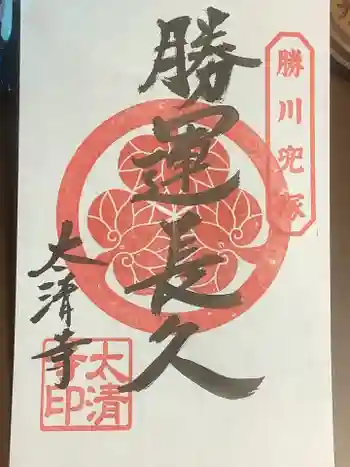 勝川兜塚
勝運長久
太清寺
太清寺印